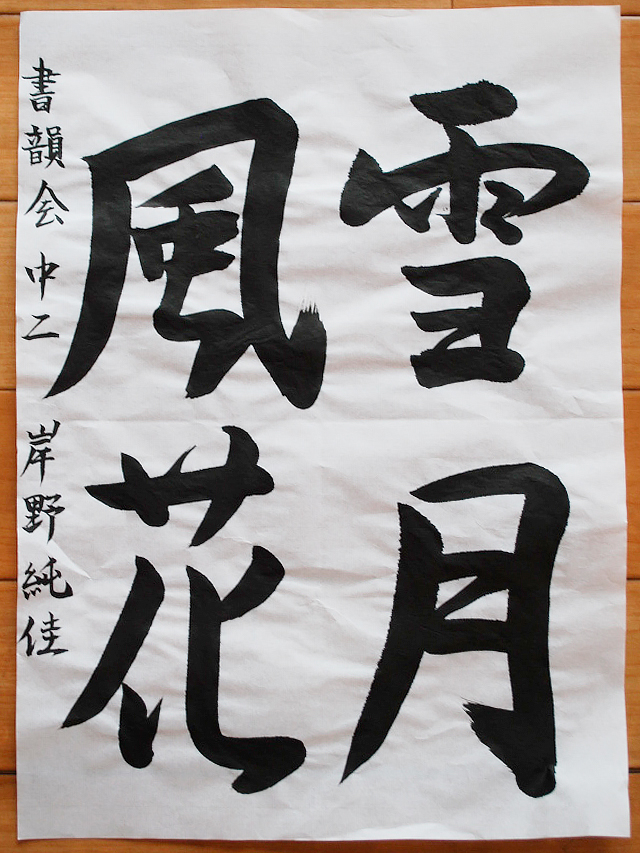 雪月
風花
書韻会 中二 岸野純佳